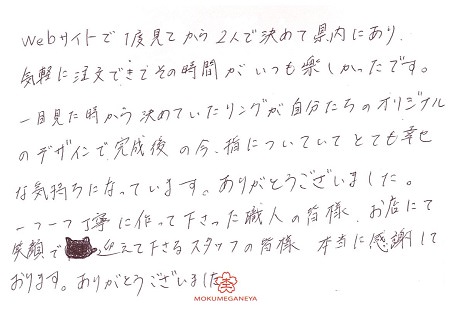 webサイトで1度見てから2人で決めて県内にあり、
気軽に注文できてその時間がいつも楽しかったです。
一目見た時から決めていたリングが自分たちのオリジナル
のデザインで完成後の今、指についていてとても幸せ
な気持ちになっています。ありがとうございました。
一つ一つ丁寧に作って下さった職人の皆様、お店にて
笑顔で迎えて下さるスタッフの皆様 本当に感謝して
おります。ありがとうございました
MOKUMEGANEYA